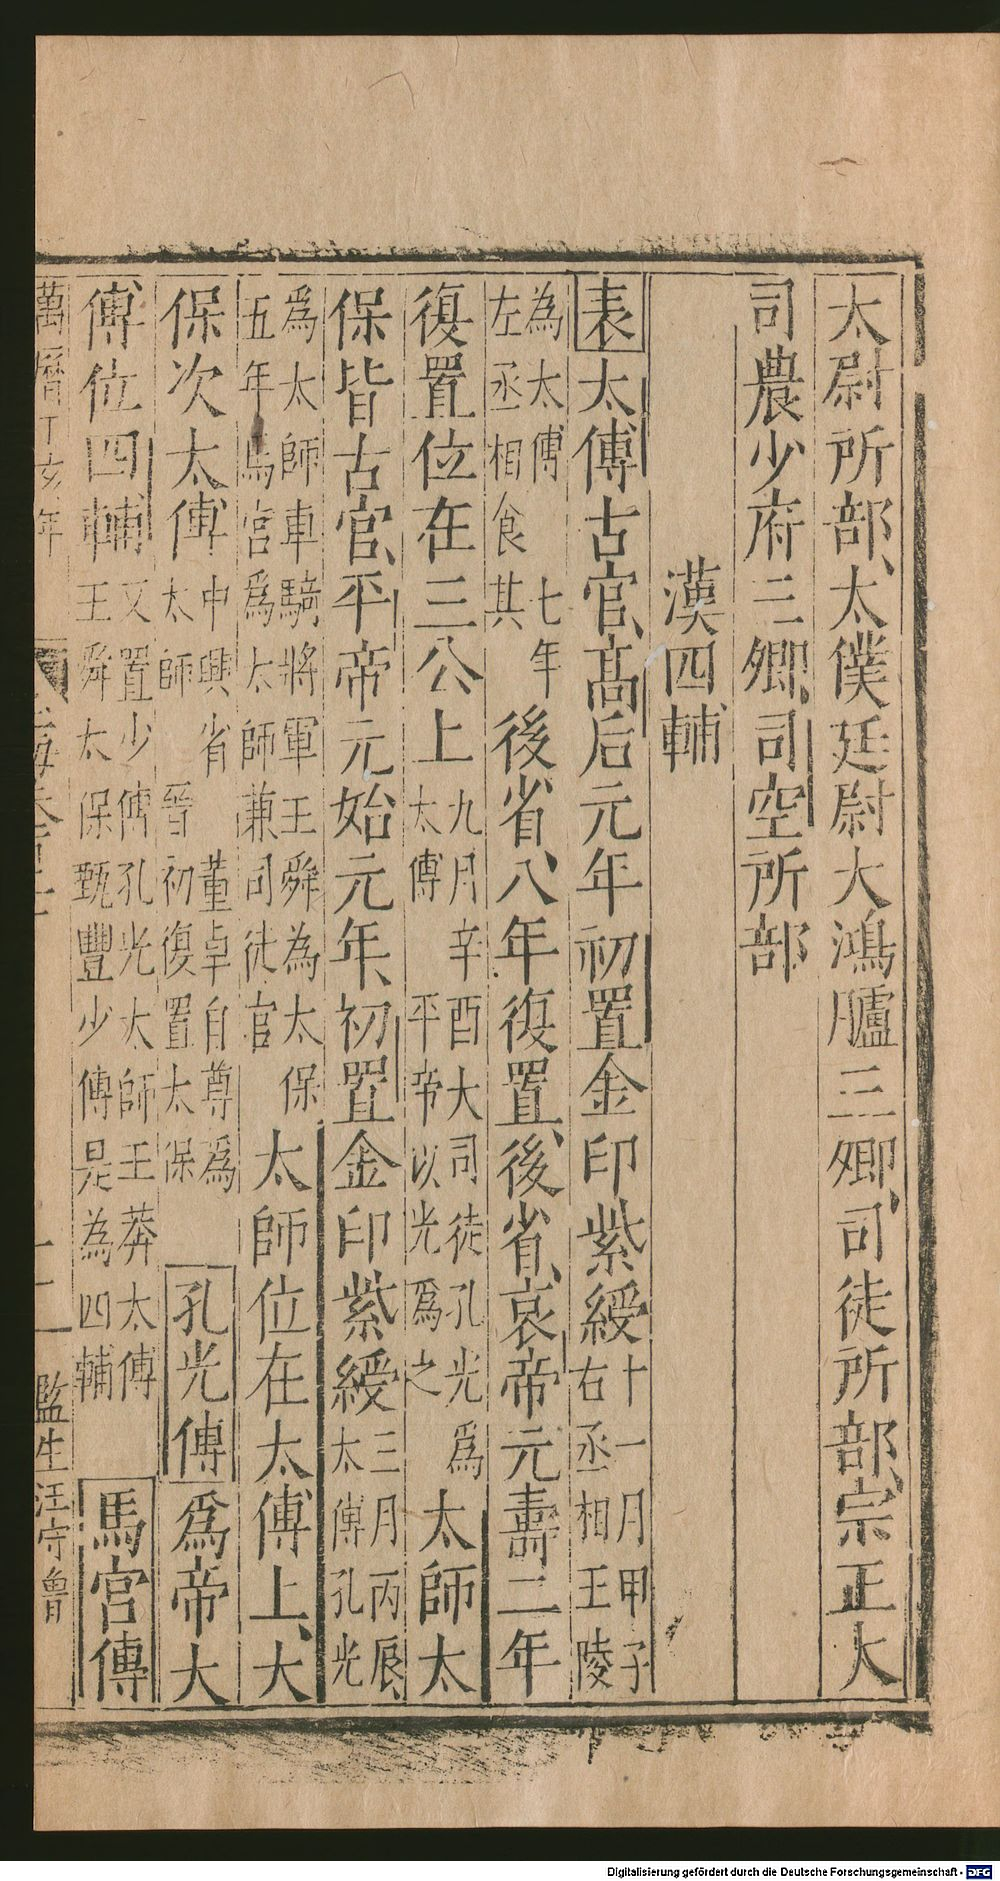 太尉所部、太僕廷尉大鴻臚三卿、司徒所部、宗正大
司農少府三卿、司空所部
漢四輔
表太傅古官、高后元年初置金印紫綬十一月甲子右丞相王陵
為太傅七年左丞相食其後省、八年復置、後省、哀帝元壽二年
復置位在三公上九月辛酉大司徒孔光爲太傅平帝以光爲之太師太
保皆古官、平帝元始元年、初置金印紫綬三月丙辰、太傅孔光
爲太師車騎將軍王舜為太保五年馬宮爲太師兼司徒官太師位在太傅上、大
保次太傅中興省董卓自尊爲太師晉初復置太保孔光傅爲帝大
傅位四輔又置少傅孔光太師王莽太傅王舜太保甄豐少傅是為四輔馬宮傳
萬曆丁亥年
監生汪守魯
Digitalisierung gefördert durch die Deutsche Forschungsgemeinschaft - DFG